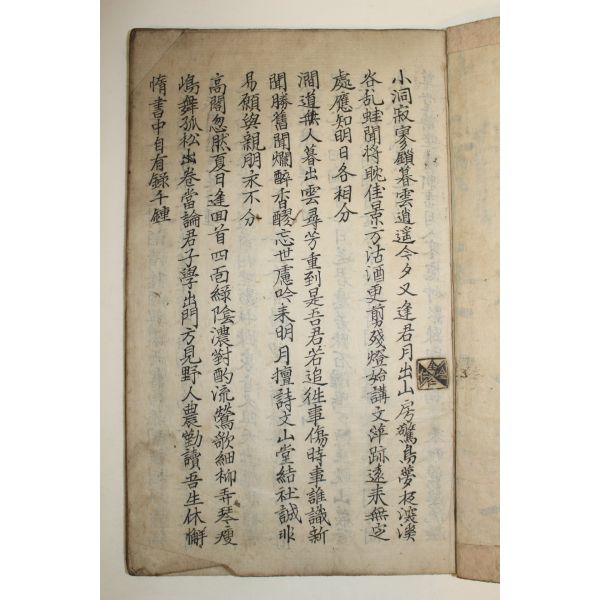 小洞寂寥鎖暮雲逍遥今夕又逢君月出山房驚鳥夢夜深溪
谷乱蛙聞将耽佳景方沽酒更剪殘燈始講文萍跡遠来無定
處應知明日各相分
澗道無人暮出雲尋芳重到是吾君若追往事傷時事誰識新
聞勝舊聞爛醉香醪忘世慮吟来明月擅詩文山堂結社誠非
易願與親朋永不分
高閣忽然夏日逢回首四面綠陰濃對酌流鶯歌細柳弄琴瘦
鳴舞孤松出卷當論君子學出門方見野人農勤讀吾生休懈
惰書中自有祿千鍾